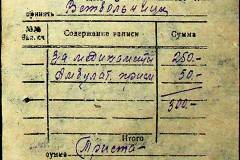 принять Ветбольниц
№№ Содержание записи Сумма
За медикаменты 250.-
Амбулат. прием 50-
300.-
Итого
сумма Триста